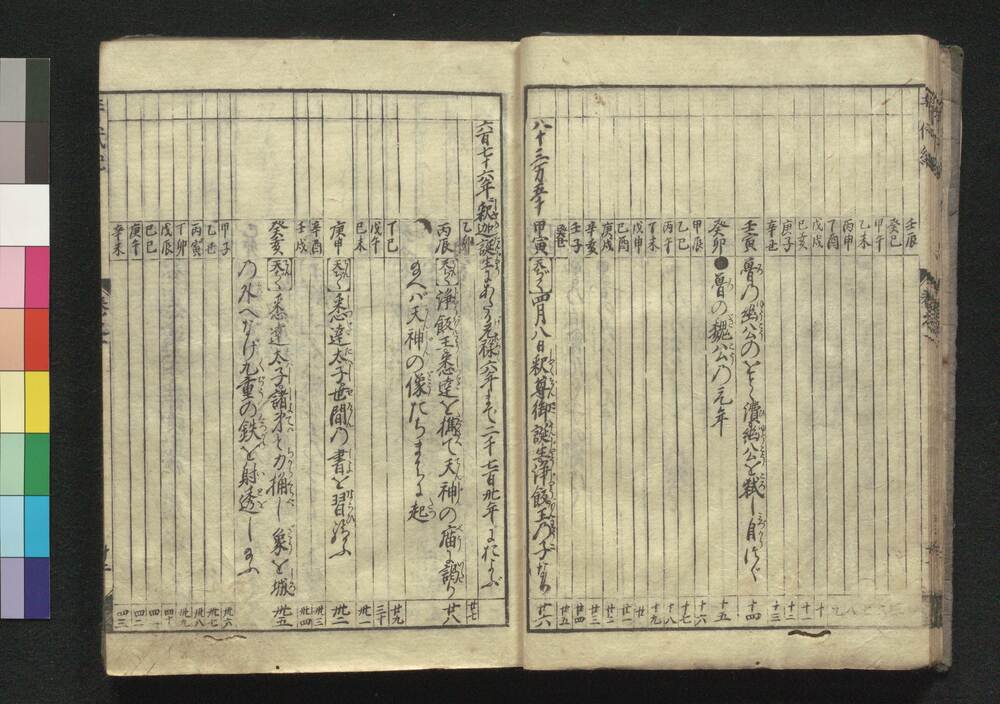 壬辰
癸巳
甲午
乙未
丙申
丁酉
戊戌
己亥 十
庚子 十二
辛丑 十三
壬寅 魯の幽公のをとゝ濞幽公を弑し自つぐ 十四
癸卯 ●魯の魏公の元年 十五
甲辰 十六
乙巳 十七
丙午 十八
丁未 十九
戊申 廿
己酉 廿一
庚戌 廿二
辛亥 廿三
壬子 廿四
癸丑 廿五
八十三万五千 甲寅 【天ぢく】四月八日釈尊御誕生浄飯王の子なり 廿六
六百七十六年 釈迦誕生よりあたり元禄六年まで二千七百廿年におよぶ
乙卯 廿七
丙辰 【天ぢく】浄飯王悉達を携て天神の廟に詣り 廿八
玉へバ天神の像たちまちに起
丁巳 廿九
戊午 三十
己未 卅一
庚申 【天ぢく】悉達太子世間の書を習給ふ 卅二
辛酉 卅三
壬戌 卅四
癸亥 【天ぢく】悉達太子諸弟と力捔し象を城 卅五
の外へなげ九重の鉄を射透し玉ふ
甲子 卅六
乙丑 卅七
丙寅 卅八
丁卯 卅九
戊辰 四十
己巳 四一
庚午 四二
辛未 四三